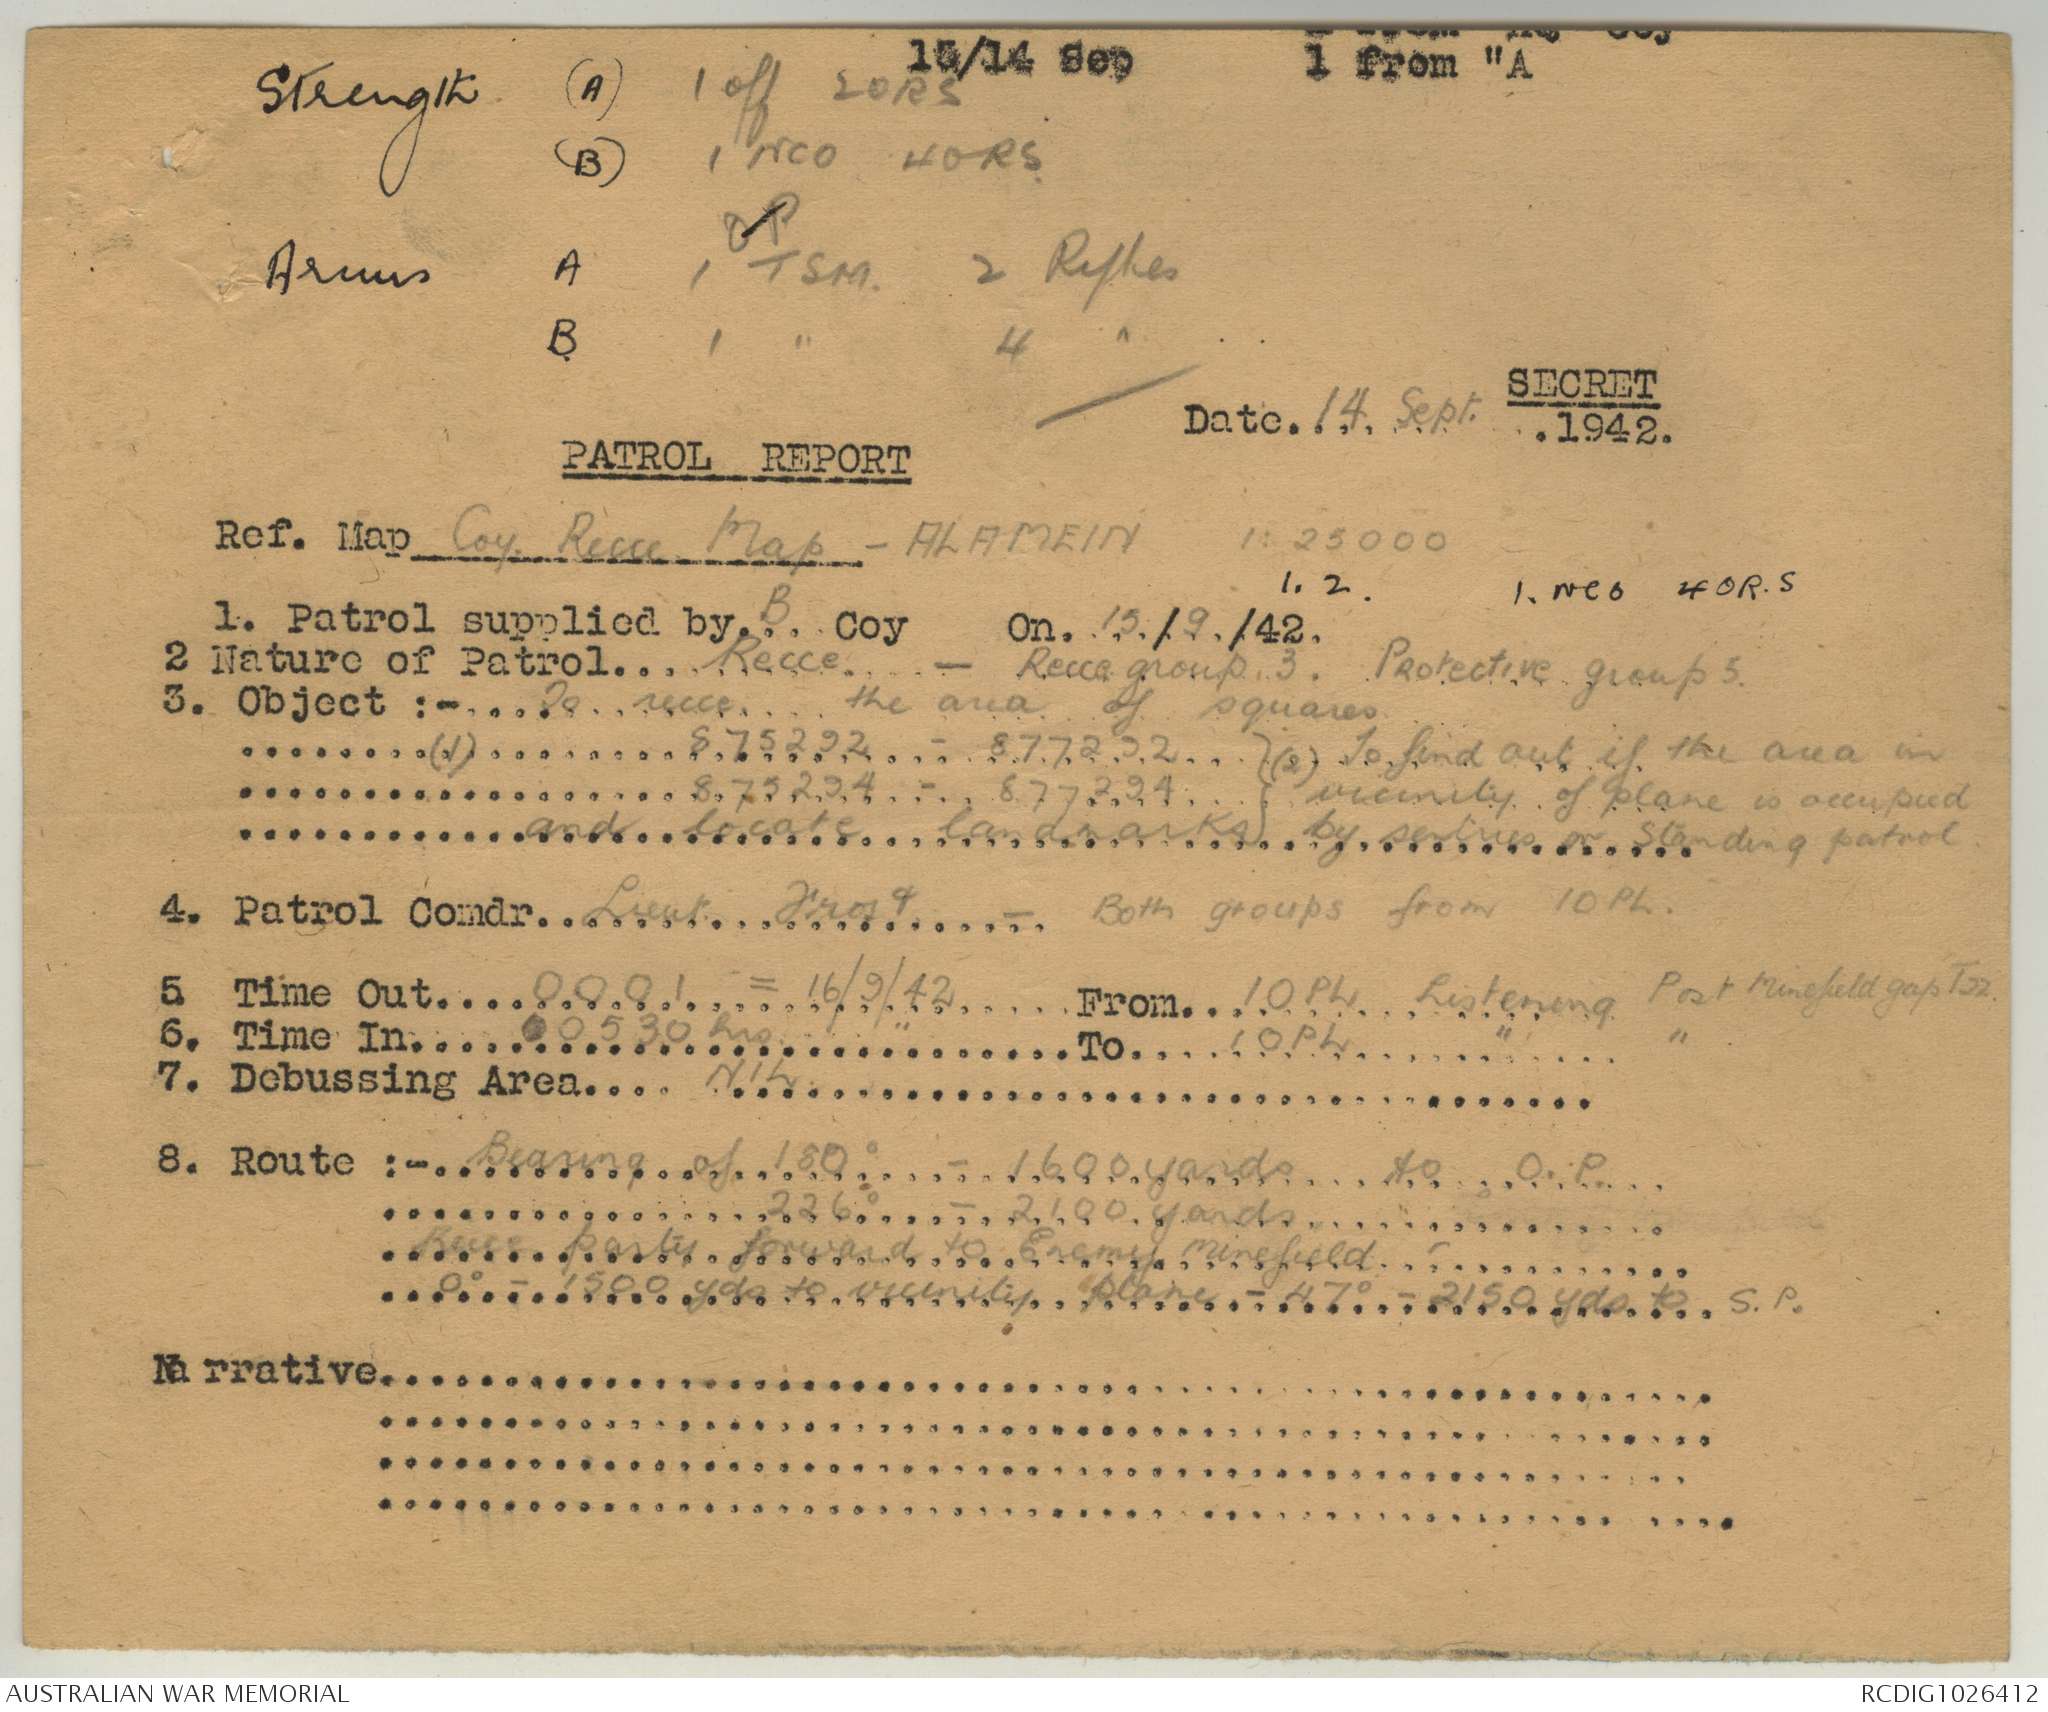 15/14 Sep
1 from "A
Strength (A) 1 off 2 ORS
(B) 1 NCO 4 ORS.
Arms A 1 TSM. 2 Rifles
B 1 " 4 "
SECRET
Date. 14 Sept. .1942.
PATROL REPORT
Ref. Map Coy. Recce Map - ALAMEIN 1:25000
1. 2. 1. NCO 4 OR.S
1. Patrol supplied by. B. Coy On. 15/9/42.
2 Nature of Patrol... Recce. - Recce group 3. Protective group 5.
3. Object :-.... To recce the area of squares
(1) 875292 - 877292 } (2) To find out if the area in
875294 - 877294 vicinity of plane is occupied
and locate landmarks } by sentries or standing patrol.
4. Patrol Comdr.. Lieut. Frost - Both groups from 10 PL.
5 Time Out.... 0001 = 16/9/42 From.. 10 PL Listening Post Minefield gap T22.
6. Time In.... 00530 hrs. " To.... 10 PL " "
7. Debussing Area.... NIL.
8. Route :-. Bearing of 180° - 1600 yards to O.P.
226° - 2100 yards
Recce party forward to Enemy Minefield -
0° - 1500 yds to vicinity plane - 47° - 2150 yds to S.P.
Narrative.
AUSTRALIAN WAR MEMORIAL
RCDIG1026412